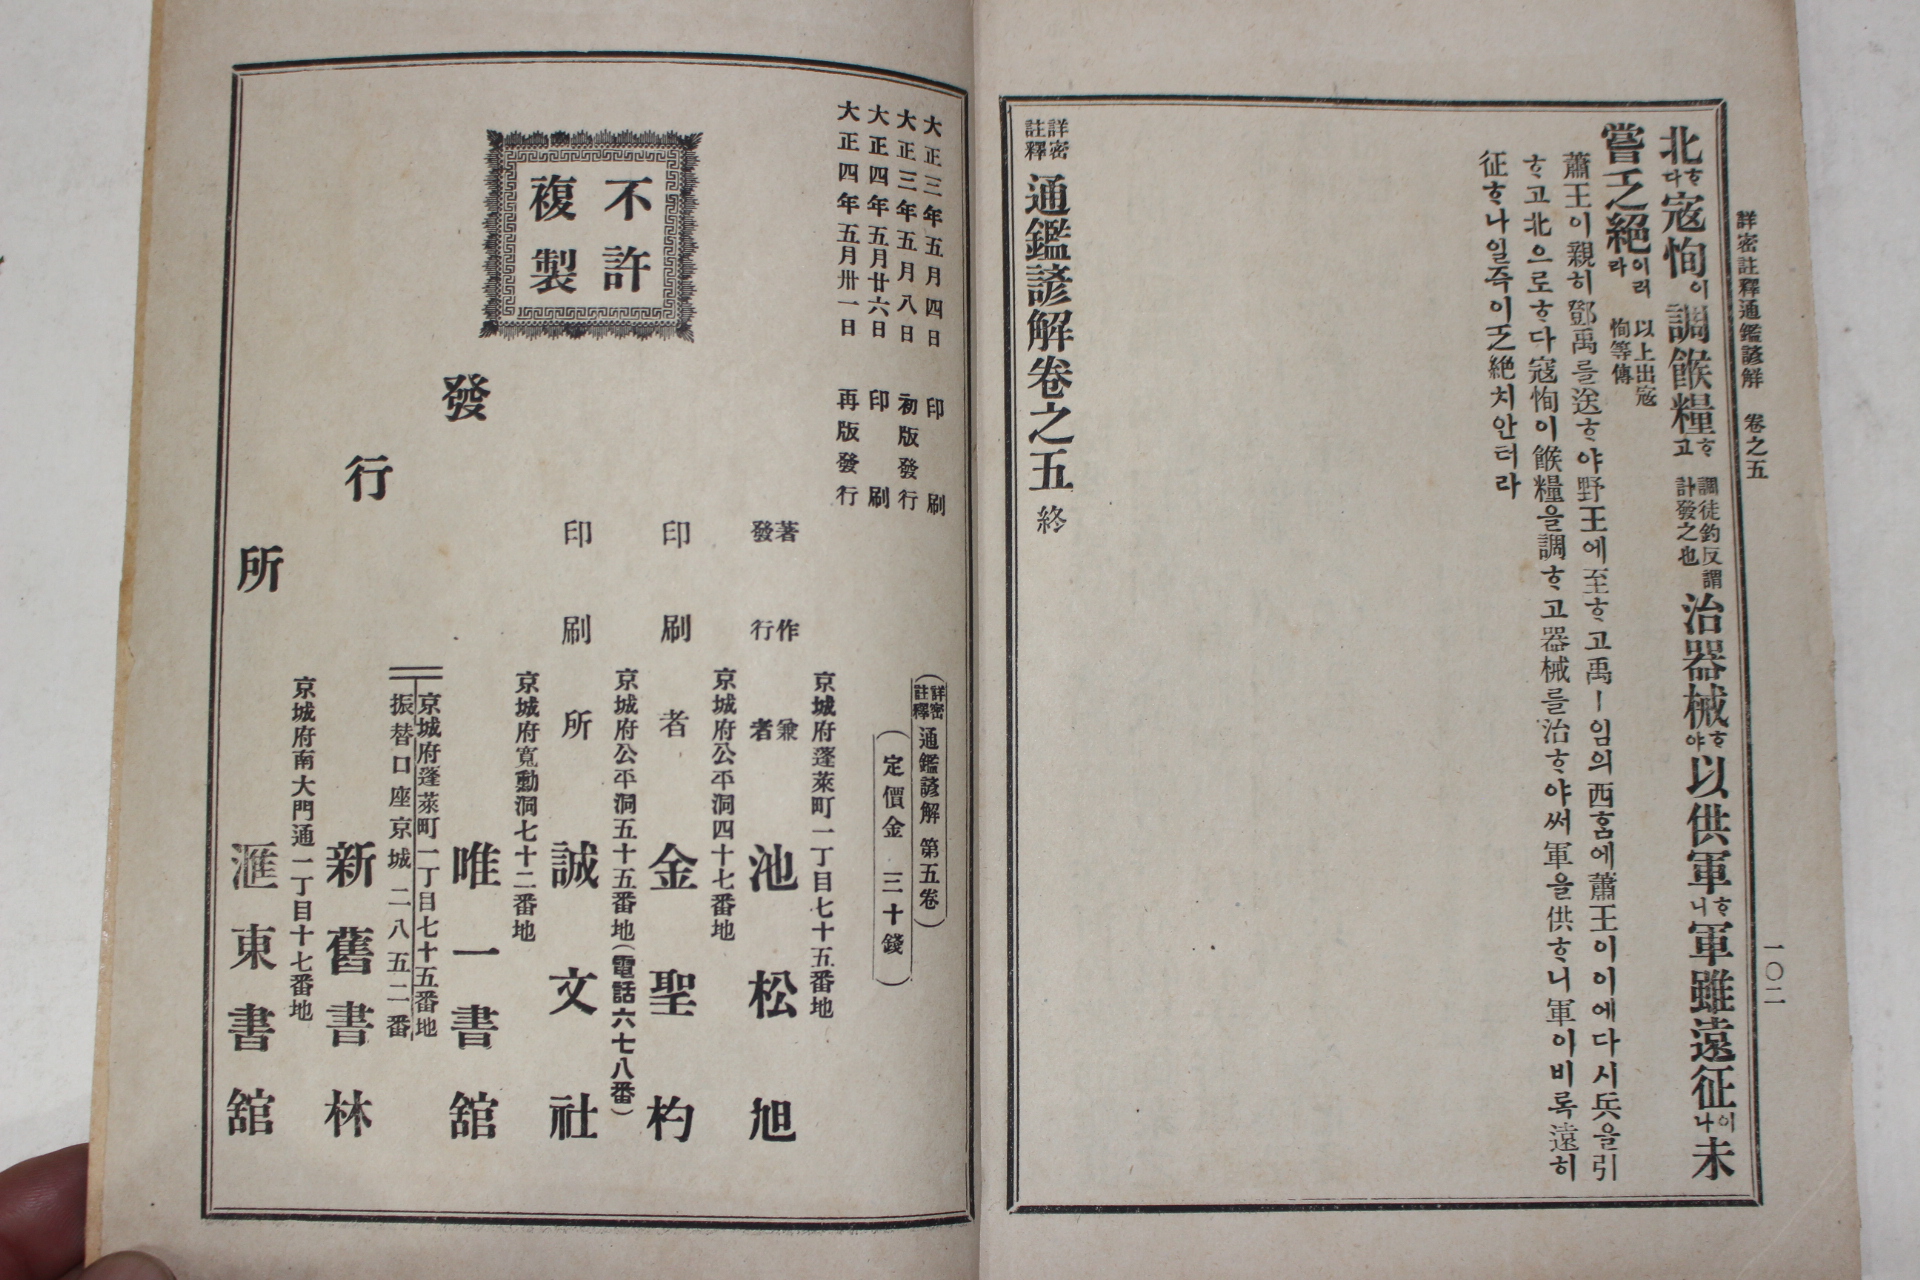 詳密註釋通鑑諺解 卷之五
一〇二
北ᄒᆞ다寇恂이調餱糧ᄒᆞ고 調徒釣反謂計發之也 治器械ᄒᆞ야以供軍ᄒᆞ니軍雖遠征이나未
嘗乏絕이러라 以上出寇恂等傳
蕭王이親히鄧禹를送ᄒᆞ야野王에至ᄒᆞ고禹ㅣ임의西홈에蕭王이이에다시兵을引
ᄒᆞ고北으로ᄒᆞ다寇恂이餱糧을調ᄒᆞ고器械를治ᄒᆞ야써軍을供ᄒᆞ니軍이비록遠히
征ᄒᆞ나일즉이乏絕치안터라
詳密註釋 通鑑諺解卷之五 終
大正三年五月四日 印刷
大正三年五月八日 初版發行
大正四年五月廿六日 印刷
大正四年五月卅一日 再版發行
不許
複製
(詳密註釋 通鑑諺解 第五卷)
(定價金 三十錢)
京城府蓬萊町一丁目七十五番地
著作兼
發行者 池松旭
京城府公平洞四十七番地
印刷者 金聖杓
京城府公平洞五十五番地(電話六七八番)
印刷所 誠文社
京城府寬勳洞七十二番地
發行所
唯一書舘
京城府蓬萊町一丁目七十五番地
振替口座京城二八五二番
新舊書林
京城府南大門通一丁目十七番地
滙東書舘